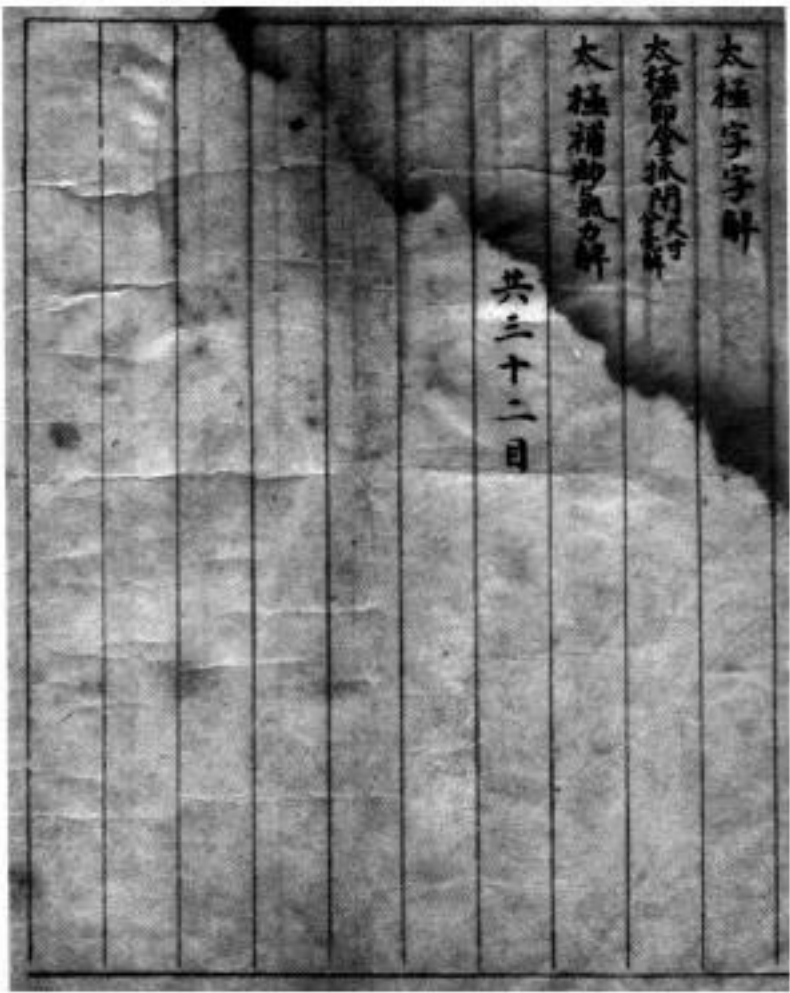 太極字字解
太極節拿抓閇尺寸分毫解
太極補卸氣力解
共三十二目